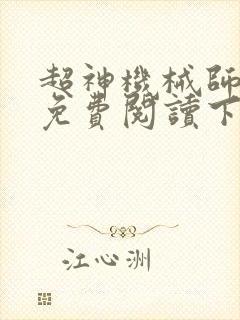 超神機械師
免費閱讀下
江心洲